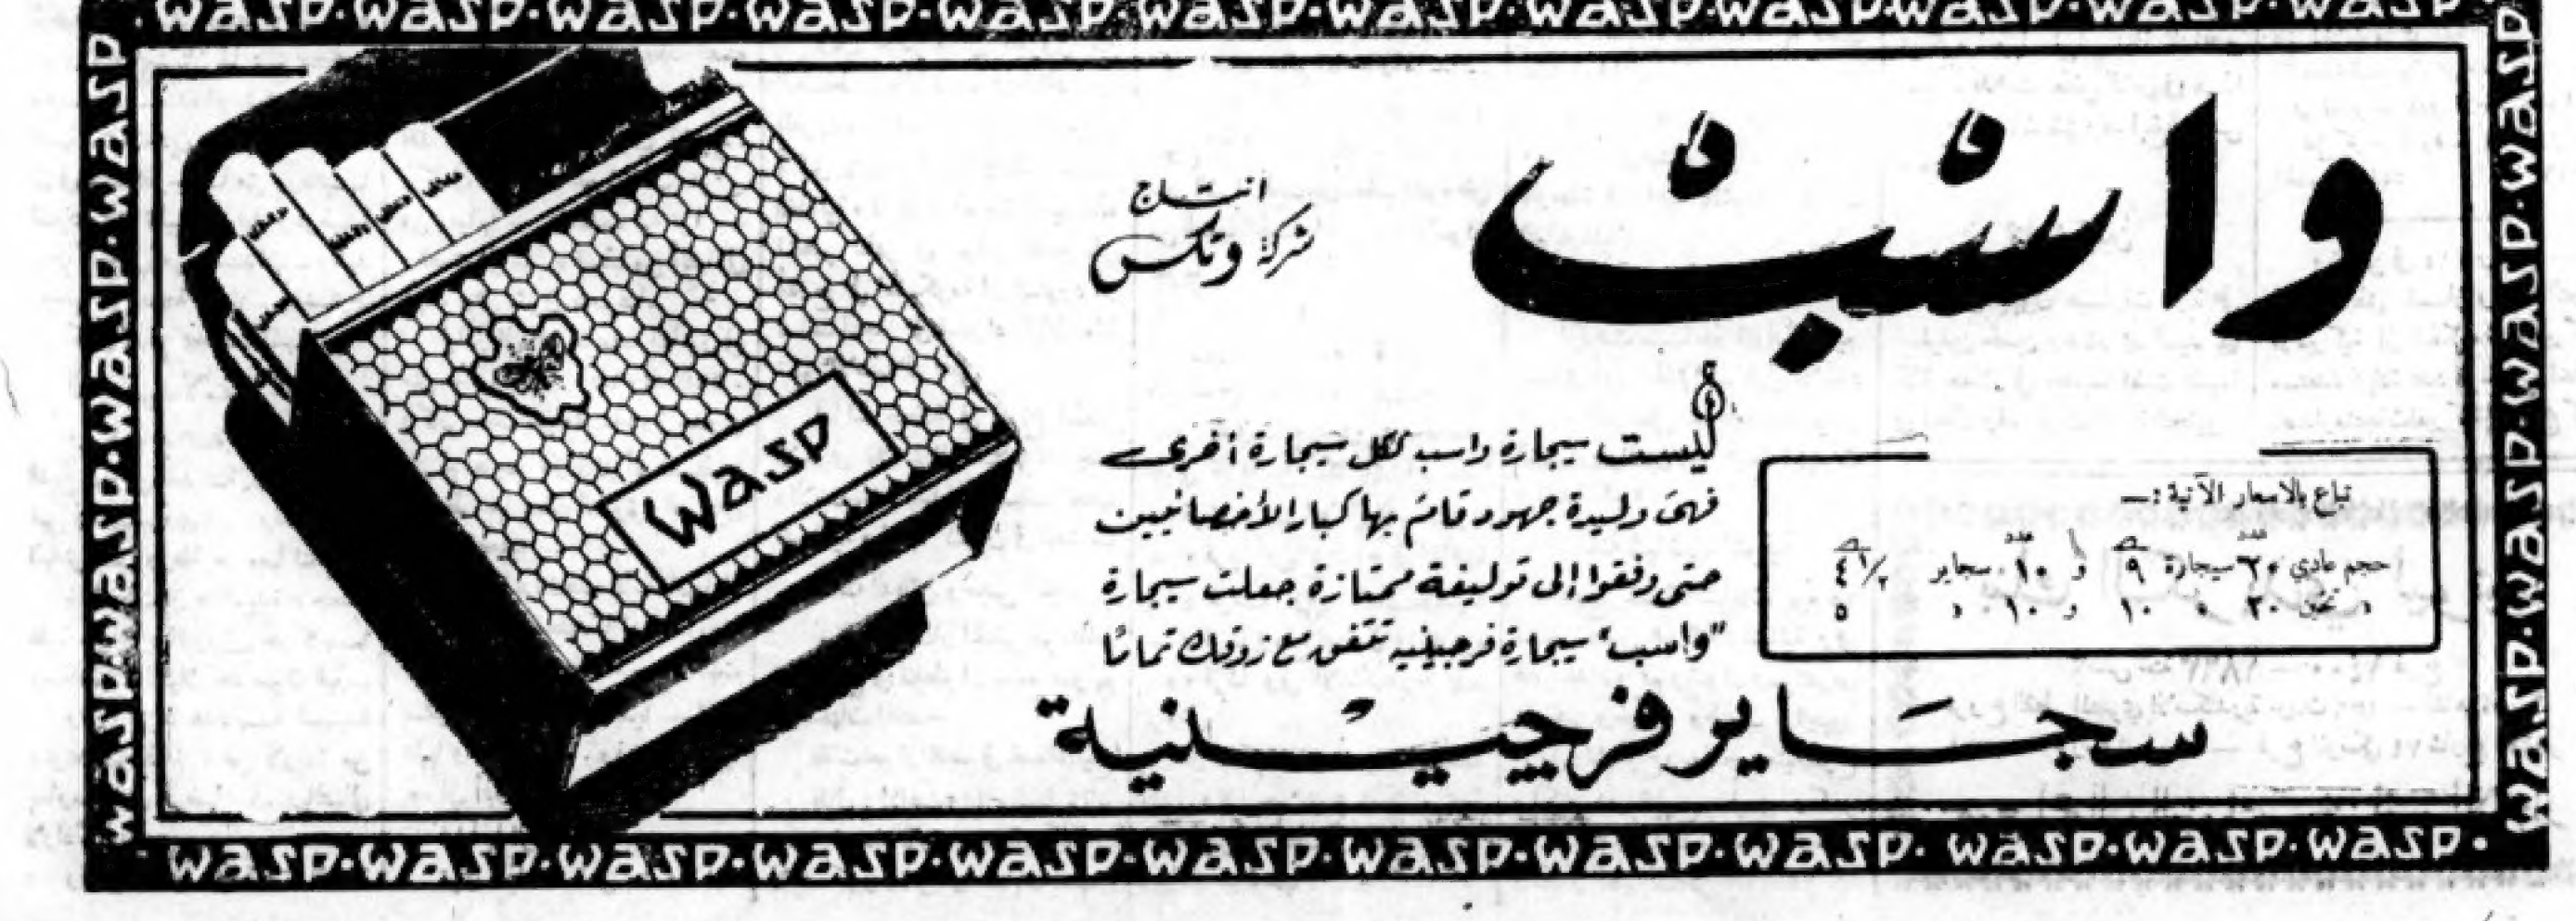 wasp·wasp·wasp·wasp·wasp·wasp·wasp·wasp·wasp·wasp·wasp·wasp
واسب
انتاج
شركة وتكس
ليست سيجارة واسب ككل سيجارة أخرى
فهى وليدة جهود قام بها كبار الأخصائيين
حتى وفقوا إلى توليفة ممتازة جعلت سيجارة
"واسب" سيجارة فرجينيه تتفق مع ذوقك تمامًا
تباع بالاسعار الآتية :—
حجم عادى ٢٠ سيجارة ٩ و ١٠ سجاير ٤ ١/٢
» تخن ٢٠ » ١٠ و ١٠ » ٥
سجاير فرجينية
wasp
wasp·wasp·wasp·wasp
wasp·wasp·wasp·wasp
wasp·wasp·wasp·wasp·wasp·wasp·wasp·wasp·wasp·wasp·wasp·wasp·